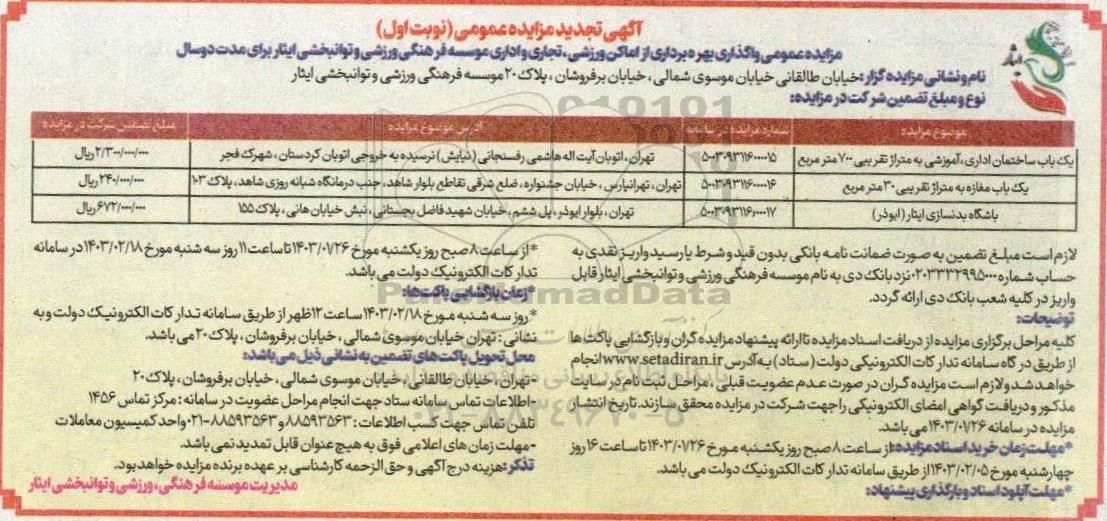 آگهی تجدید مزایده عمومی (نوبت اول)
مزایده عمومی واگذاری بهره برداری از اماکن ورزشی، تجاری و اداری موسسه فرهنگی ورزشی و توانبخشی ایثار برای مدت دو سال
نام و نشانی مزایده گزار: خیابان طالقانی خیابان موسوی شمالی، خیابان برفروشان، پلاک ۲۰ موسسه فرهنگی ورزشی و توانبخشی ایثار
نوع و مبلغ تضمین شرکت در مزایده:
موضوع مزایده شماره مزایده در سامانه آدرس موضوع مزایده مبلغ تضمین شرکت در مزایده
یک باب ساختمان اداری، آموزشی به متراژ تقریبی ۷۰۰ متر مربع ۵۰۰۳۰۹۳۱۱۶۰۰۰۰۱۵ تهران، اتوبان آیت اله هاشمی رفسنجانی (نیایش) نرسیده به خروجی اتوبان کردستان، شهرک فجر ۲/۳۰۰/۰۰۰/۰۰۰ ریال
یک باب مغازه به متراژ تقریبی ۳۰ متر مربع ۵۰۰۳۰۹۳۱۱۶۰۰۰۰۱۶ تهران، تهرانپارس، خیابان جشنواره، ضلع شرقی تقاطع بلوار شاهد، جنب درمانگاه شبانه روزی شاهد، پلاک ۱۰۳ ۲۴۰/۰۰۰/۰۰۰ ریال
باشگاه بدنسازی ایثار (ابوذر) ۵۰۰۳۰۹۳۱۱۶۰۰۰۰۱۷ تهران، بلوار ابوذر، پل ششم، خیابان شهید فاضل بجستانی، نبش خیابان هانی، پلاک ۱۵۵ ۶۷۲/۰۰۰/۰۰۰ ریال
لازم است مبلغ تضمین به صورت ضمانت نامه بانکی بدون قید و شرط یا رسید واریز نقدی به
حساب شماره ۰۲۰۳۳۳۲۹۹۵۰۰۰ نزد بانک دی به نام موسسه فرهنگی ورزشی و توانبخشی ایثار قابل
واریز در کلیه شعب بانک دی ارائه گردد.
توضیحات:
کلیه مراحل برگزاری مزایده از دریافت اسناد مزایده تا ارائه پیشنهاد مزایده گران و بازگشایی پاکت ها
از طریق درگاه سامانه تدارکات الکترونیکی دولت (ستاد) به آدرس www.setadiran.ir انجام
خواهد شد و لازم است مزایده گران در صورت عدم عضویت قبلی، مراحل ثبت نام در سایت
مذکور و دریافت گواهی امضای الکترونیکی را جهت شرکت در مزایده محقق سازند. تاریخ انتشار
مزایده در سامانه ۱۴۰۳/۰۱/۲۶ می باشد.
*مهلت زمان خرید اسناد مزایده: از ساعت ۸ صبح روز یکشنبه مورخ ۱۴۰۳/۰۱/۲۶ تا ساعت ۱۶ روز
چهارشنبه مورخ ۱۴۰۳/۰۲/۰۵ از طریق سامانه تدارکات الکترونیک دولت می باشد.
*مهلت آپلود اسناد و بارگذاری پیشنهاد:
*از ساعت ۸ صبح روز یکشنبه مورخ ۱۴۰۳/۰۱/۲۶ تا ساعت ۱۱ روز سه شنبه مورخ ۱۴۰۳/۰۲/۱۸ در سامانه
تدارکات الکترونیک دولت می باشد.
*زمان بازگشایی پاکت ها:
*روز سه شنبه مورخ ۱۴۰۳/۰۲/۱۸ ساعت ۱۲ ظهر از طریق سامانه تدارکات الکترونیک دولت و به
نشانی: تهران خیابان موسوی شمالی، خیابان برفروشان، پلاک ۲۰ می باشد.
محل تحویل پاکت های تضمین به نشانی ذیل می باشد:
-تهران، خیابان طالقانی، خیابان موسوی شمالی، خیابان برفروشان، پلاک ۲۰
-اطلاعات تماس سامانه ستاد جهت انجام مراحل عضویت در سامانه: مرکز تماس ۱۴۵۶
تلفن تماس جهت کسب اطلاعات: ۸۸۵۹۳۵۶۳ و ۸۸۵۹۳۵۶۳-۰۲۱ واحد کمیسیون معاملات
-مهلت زمان های اعلامی فوق به هیچ عنوان قابل تمدید نمی باشد.
تذکر: هزینه درج آگهی و حق الزحمه کارشناسی بر عهده برنده مزایده خواهد بود.
مدیریت موسسه فرهنگی، ورزشی و توانبخشی ایثار